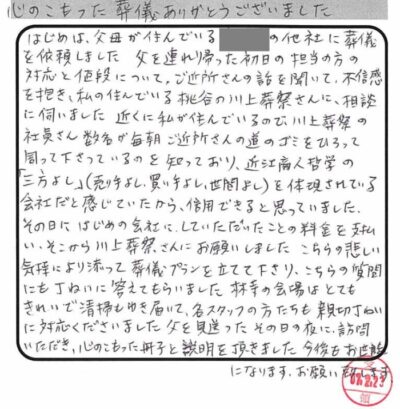 心のこもった葬儀ありがとうございました
はじめは、父母が住んでいる の他社に葬儀
を依頼しました 父を連れ帰った初日の担当の方の
対応と値段について、ご近所さんの話を聞いて、不信感
を抱き、私の住んでいる桃谷の川上葬祭さんに、相談
に伺いました 近くに私が住んでいるので川上葬祭の
社員さん数名が毎朝ご近所さんの道のゴミをひろって
回って下さっているのを知っており、近江商人哲学の
「三方よし」(売り手よし、買い手よし、世間よし)を体現されている
会社だと感じていたから、信用できると思っていました。
その日にはじめの会社にしていただいたことの料金を支払
い、そこから川上葬祭さんにお願いしました こちらの悲しい
気持により添って葬儀プランを立てて下さり、こちらの質問
にも丁ねいに答えてもらいました 林寺の会場はとても
きれいで清掃もゆき届いて、各スタッフの方たちも親切丁ねい
に対応くださいました 父を見送ったその日の夜に、訪問
いただき、心のこもった冊子と説明を頂きました 今後もお世話
になります。お願い致します